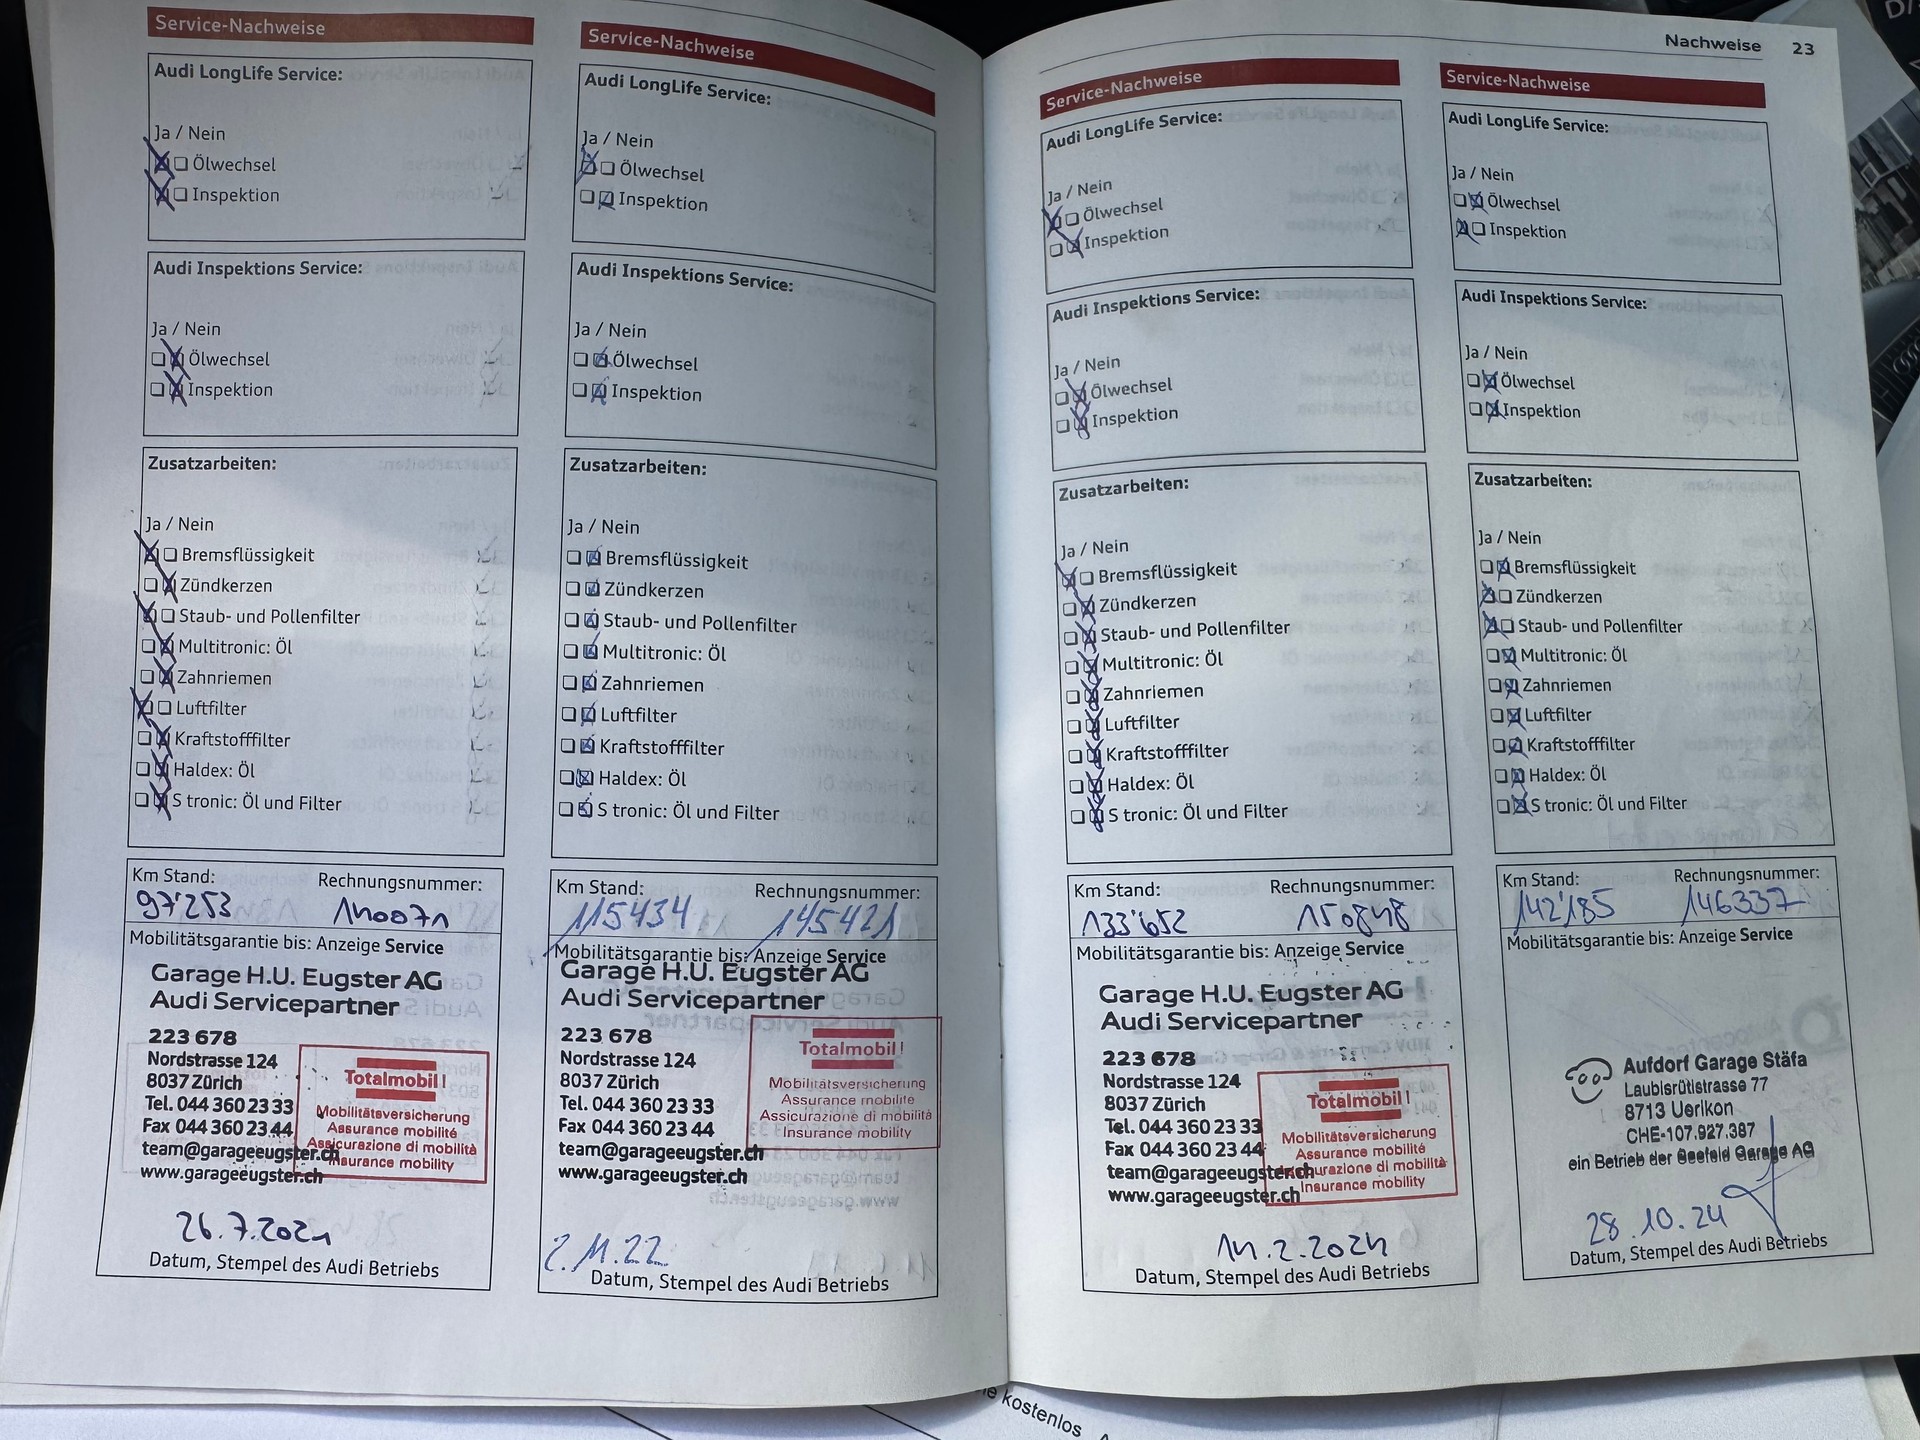 Service-Nachweise
Audi LongLife Service:
Ja / Nein
Ölwechsel
Inspektion
Audi Inspektions Service:
Ja / Nein
Ölwechsel
Inspektion
Zusatzarbeiten:
Ja / Nein
Bremsflüssigkeit
Zündkerzen
Staub- und Pollenfilter
Multitronic: Öl
Zahnriemen
Luftfilter
Kraftstofffilter
Haldex: Öl
S tronic: Öl und Filter
Km Stand: Rechnungsnummer:
97'253 140071
Mobilitätsgarantie bis: Anzeige Service
Garage H.U. Eugster AG
Audi Servicepartner
223 678
Nordstrasse 124
8037 Zürich
Tel. 044 360 23 33
Fax 044 360 23 44
team@garageeugster.ch
www.garageeugster.ch
Totalmobil!
Mobilitätsversicherung
Assurance mobilité
Assicurazione di mobilità
Insurance mobility
26.7.2021
Datum, Stempel des Audi Betriebs
Service-Nachweise
Audi LongLife Service:
Ja / Nein
Ölwechsel
Inspektion
Audi Inspektions Service:
Ja / Nein
Ölwechsel
Inspektion
Zusatzarbeiten:
Ja / Nein
Bremsflüssigkeit
Zündkerzen
Staub- und Pollenfilter
Multitronic: Öl
Zahnriemen
Luftfilter
Kraftstofffilter
Haldex: Öl
S tronic: Öl und Filter
Km Stand: Rechnungsnummer:
115434 145421
Mobilitätsgarantie bis: Anzeige Service
Garage H.U. Eugster AG
Audi Servicepartner
223 678
Nordstrasse 124
8037 Zürich
Tel. 044 360 23 33
Fax 044 360 23 44
team@garageeugster.ch
www.garageeugster.ch
Totalmobil!
Mobilitätsversicherung
Assurance mobilité
Assicurazione di mobilità
Insurance mobility
2.11.22
Datum, Stempel des Audi Betriebs
Nachweise 23
Service-Nachweise
Audi LongLife Service:
Ja / Nein
Ölwechsel
Inspektion
Audi Inspektions Service:
Ja / Nein
Ölwechsel
Inspektion
Zusatzarbeiten:
Ja / Nein
Bremsflüssigkeit
Zündkerzen
Staub- und Pollenfilter
Multitronic: Öl
Zahnriemen
Luftfilter
Kraftstofffilter
Haldex: Öl
S tronic: Öl und Filter
Km Stand: Rechnungsnummer:
133'652 150848
Mobilitätsgarantie bis: Anzeige Service
Garage H.U. Eugster AG
Audi Servicepartner
223 678
Nordstrasse 124
8037 Zürich
Tel. 044 360 23 33
Fax 044 360 23 44
team@garageeugster.ch
www.garageeugster.ch
Totalmobil!
Mobilitätsversicherung
Assurance mobilité
Assicurazione di mobilità
Insurance mobility
14.2.2024
Datum, Stempel des Audi Betriebs
Service-Nachweise
Audi LongLife Service:
Ja / Nein
Ölwechsel
Inspektion
Audi Inspektions Service:
Ja / Nein
Ölwechsel
Inspektion
Zusatzarbeiten:
Ja / Nein
Bremsflüssigkeit
Zündkerzen
Staub- und Pollenfilter
Multitronic: Öl
Zahnriemen
Luftfilter
Kraftstofffilter
Haldex: Öl
S tronic: Öl und Filter
Km Stand: Rechnungsnummer:
142'185 146337
Mobilitätsgarantie bis: Anzeige Service
Aufdorf Garage Stäfa
Laubisrütistrasse 77
8713 Uerikon
CHE-107.927.387
ein Betrieb der Seefeld Garage AG
28.10.24
Datum, Stempel des Audi Betriebs
kostenlos